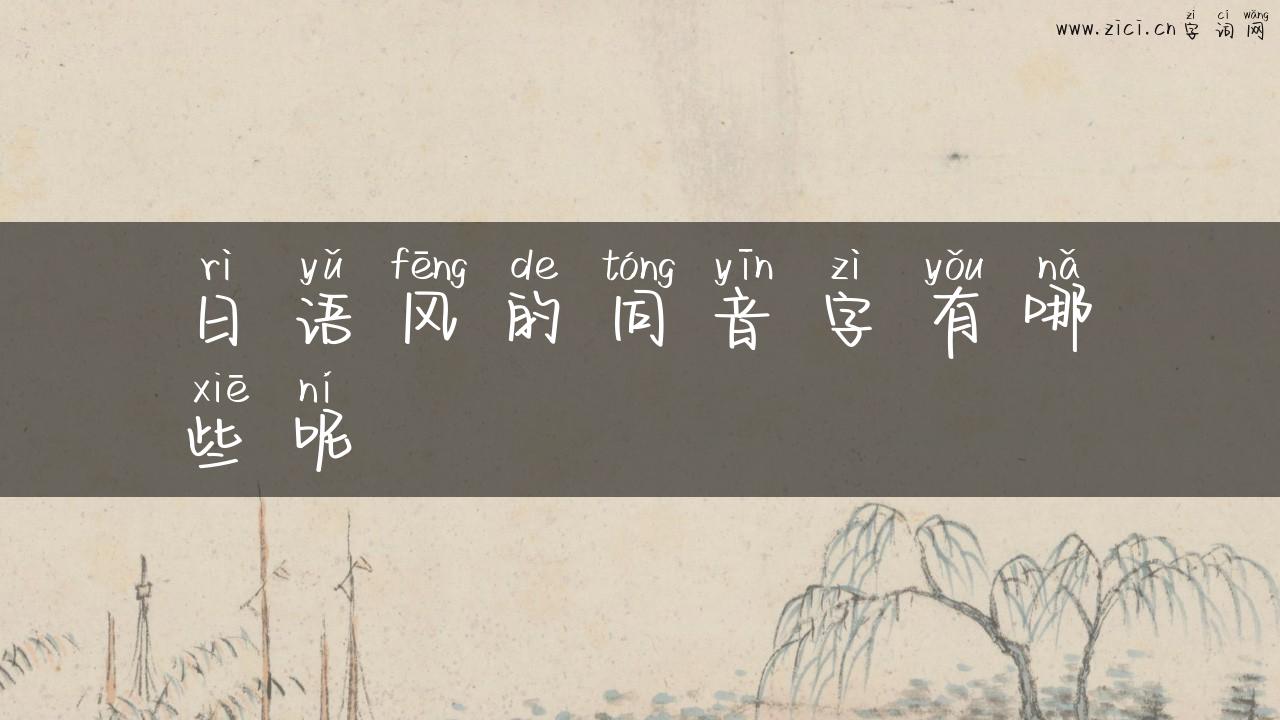 zì cí wǎng
www.zici.cn 字词网
rì yǔ fēng de tóng yīn zì yǒu nǎ
日语风的同音字有哪
xiē ní
些呢